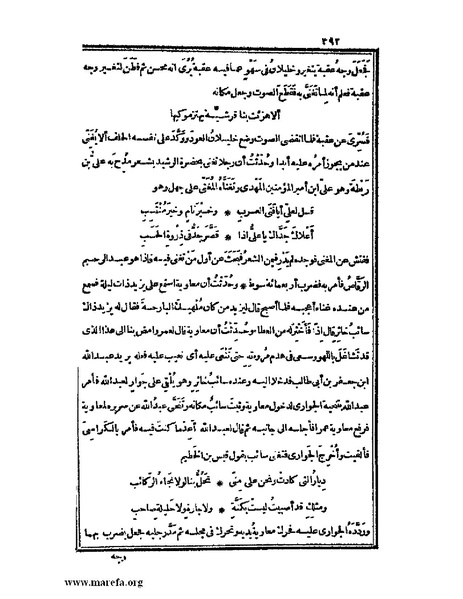 ٣٩٣
فجعل وجه عقبة يتغير وخليلان في سهو عما فيه عقبة يُرى انه محسن ثم فطن لتغير وجه
عقبة فعلم أنه لما تغنى به فقطع الصوت وجعل مكانه
ألا هزئت بنا قرشيّة يهتز موكبها
فسُرّي عن عقبة فلما انقضى الصوت وضع خليلان العود ووكّد على نفسه الحلف ألا يُغنّي
عند من يجوز أمره عليه أبدا وحُدّثت أن رجلا تغنى بحضرة الرشيد بشعر مُدح به علي بن
ريطة وهو علي ابن أمير المؤمنين المهدي وتغناه المُغنّي على جهل وهو
قل لعليّ أيا فتى العرب * وخير نام وخير مُنتسب
أعلاك جدّاك يا عليّ اذا * قصّر جدّ في ذروة الحسب
ففتش عن المغني فوجده لم يدر فيمن الشعر فبحث عن أول من تغنى فيه فاذا هو عبد الرحيم
الرقّاص فأمر به فضرب أربعمائة سوط * وحُدّثت أن معاوية استمع على يزيد ذات ليلة فسمع
من عنده غناء أعجبه فلما أصبح قال ليزيد من كان مُلهيك البارحة فقال له يزيد ذاك
سائب خاثر قال اذًا فأخثر له من العطا وحُدّثت أن معاوية قال لعمرو امض بنا الى هذا الذي
قد تشاغل باللهو وسعى في هدم مروءته حتى ننعى عليه أي نعيب عليه فعله يريد عبد الله
ابن جعفر بن أبي طالب فدخلا اليه وعنده سائب خاثر وهو يُلقي على جوار لعبد الله فأمر
عبد الله بتنحية الجواري لدخول معاوية وثبت سائب مكانه وتنحّى عبد الله عن سريره لمعاوية
فرفع معاوية عمرا فأجلسه الى جانبه ثم قال لعبد الله أعد ما كنت فيه فأمر بالكراسيّ
فألقيت وأُخرج الجواري فتغنى سائب بقول قيس بن الخطيم
ديار التي كادت ونحن على منى * تحلّ بنا لولا نجاء الركائب
ومثلك قد أصبيت ليست بكنّة * ولا جارة ولا حليلة صاحب
وردّده الجواري عليه فحرّك معاوية يديه وتحرك في مجلسه ثم مدّ رجليه فجعل يضرب بهما
وجه
www.marefa.org